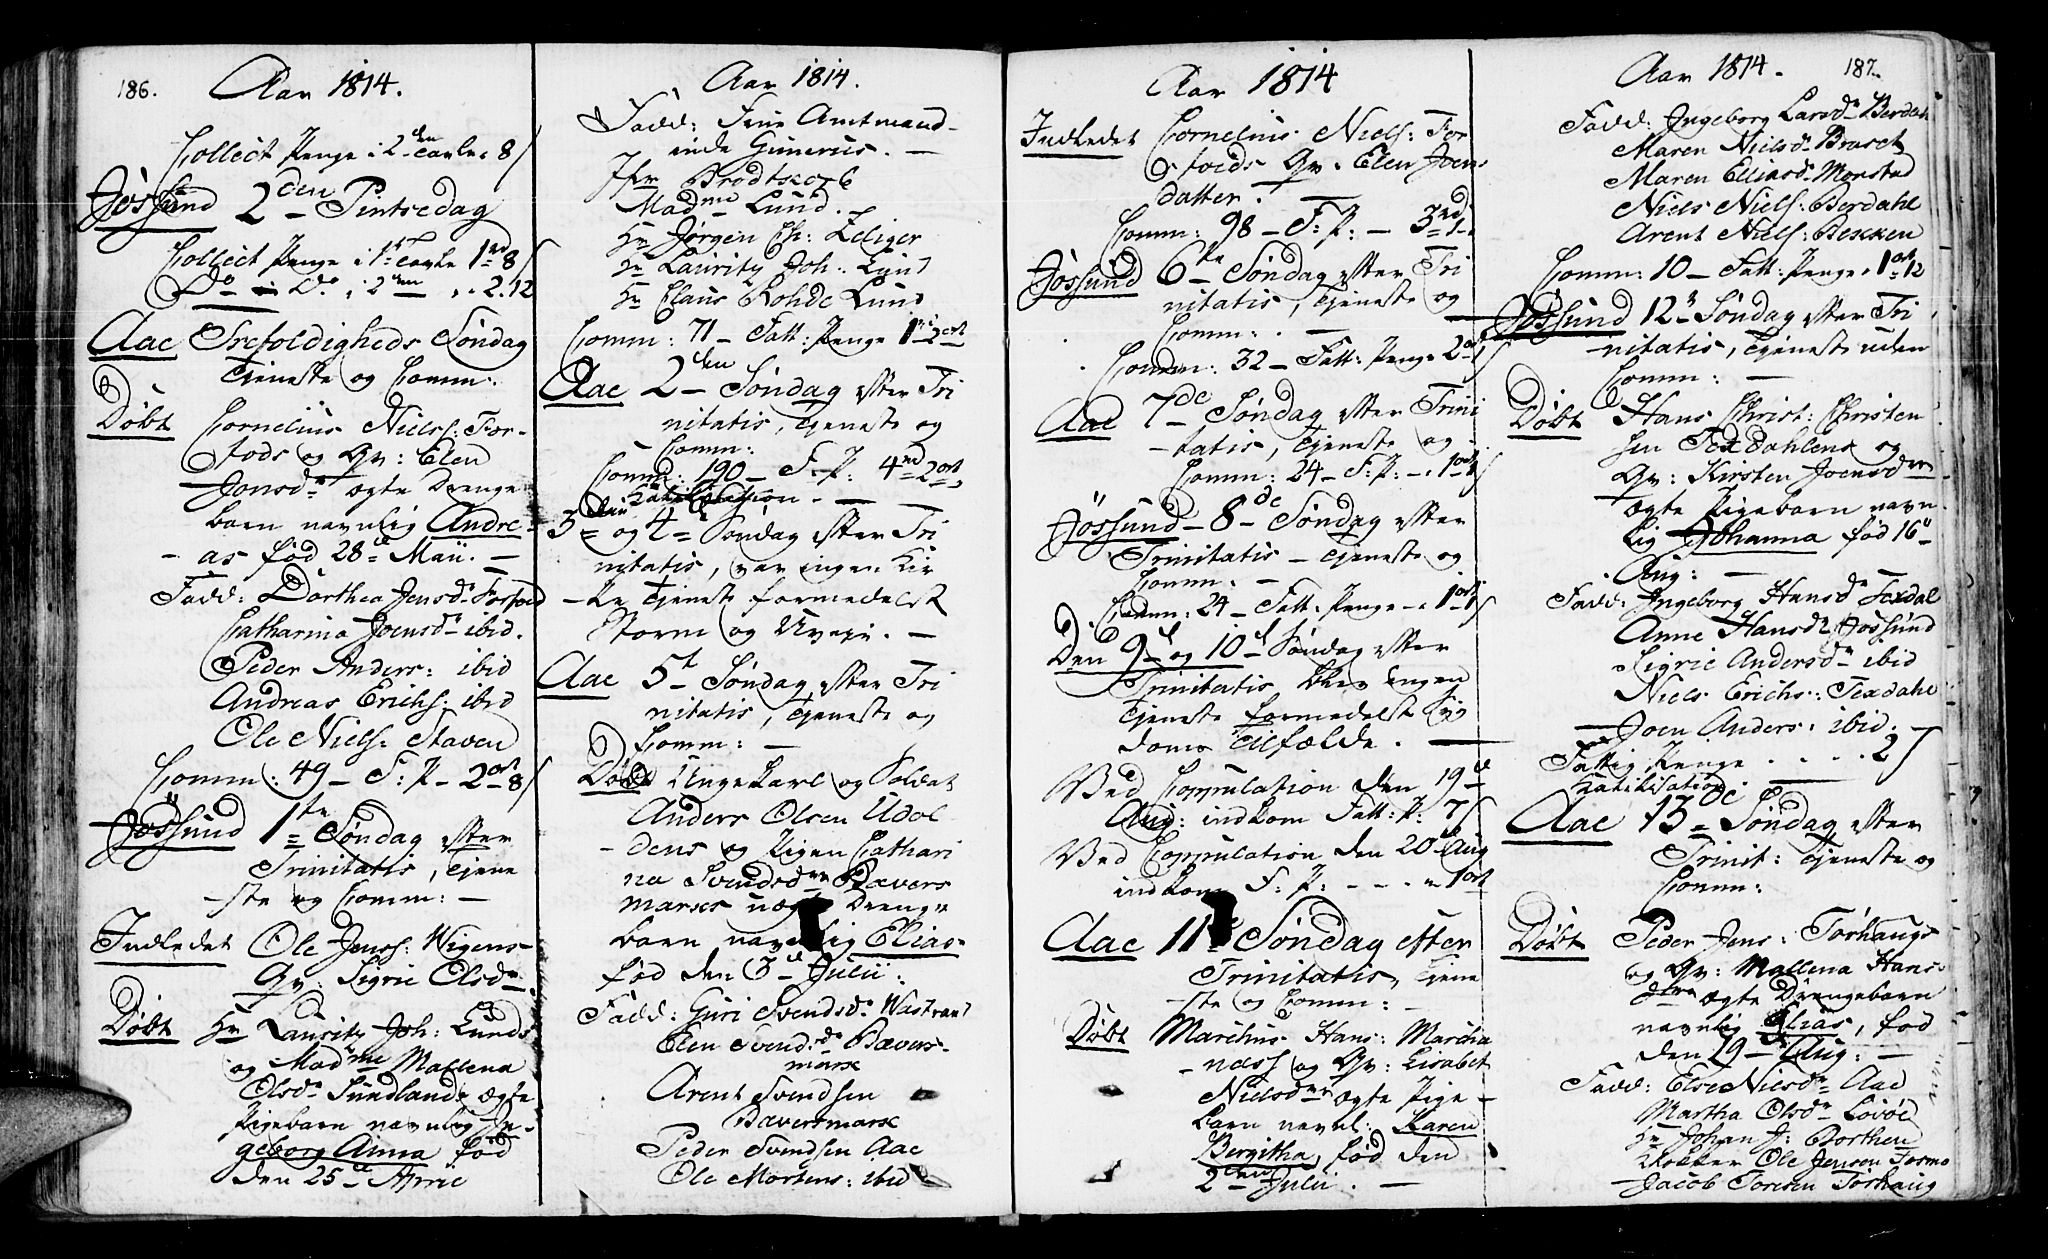 186.
Aar 1814.
Collect Penge i 2den tavle 8 ſ
Jössund 2den Pintsedag
Collect Penge i 1ste tavle 1rd 8 ſ
Do i Do i 2den " 2.12
Aae Trefoldigheds Söndag
Tjeneste og Comm:
Döbt Cornelius Niels: For-
fods og Qv: Elen
Jonsdr ægte Drenge
barn navnlig Andre-
as föd 28de Maii. —
Fadd: Dorthea Jensdr Forfod
Catharina Joensdr ibid.
Peder Anders: ibid
Andreas Erichs: ibid
Ole Niels: Staven
Comm: 49 — F: P — 2ort 8 ſ
Jössund 1ste Söndag efter
Trinitatis, Tjene
-ste og Comm: —
Indledet Ole Jenss: Wigens
Qv: Sigrie Olsdr.
Döbt Hr Lauritz Joh: Lunds
og Madme Mallena
Olsdr Sundland ægte
Pigebarn navnlig In-
geborg Anna föd
den 25de April
Aar 1814.
Fadd: Frue Amtmand-
inde Gunerus. —
Jfr Brodtkorb
Madme Lund. —
Hr Jörgen Ch: Eeliger
Hr Lauritz Joh: Lund
Hr Claus Rohde Lund
Comm: 71 — Fatt: Penge 1rd 2ort
Aae 2den Söndag efter Tri
nitatis, Tjeneste og
Comm:
Comm: 190 — F: P: 4rd 2ort
Catikisation. —
3die og 4de Söndag efter Tri
nitatis, var ingen Kir
-ke Tjeneste formedelst
Storm og Uveir. —
Aae 5te Söndag efter Tri
nitatis, Tjeneste og
Comm: —
Döbt Ungekarl og Soldat
Anders Olsen Udal
-dens og Pigen Cathari
na Svendsdr Bævers
markes uægte Drenge
barn navnlig Elias
föd den 3de Julii.
Fadd: Guri Svendsdr Wastrand
Elen Svendsdr Bævers-
mark
Arent Svendsen
Bæversmark
Peder Svendsen Aae
Ole Mortens: ibid
Aar 1814
Indledet Cornelius Niels: For
fods Qv: Elen Joens
datter. —
Comm: 98 — F: P: — 3rd
Jössund 6te Söndag efter Tri
nitatis, Tjeneste og
Comm: —
Comm: 32 — Fatt: Penge 2ort
Aae 7de Söndag efter Trini
-tatis, Tjeneste og
Comm: 24 — F: P: — 1ort
Jössund — 8de Söndag efter
Trinitatis — Tjeneste og
Comm. —
Comm: 24 — Fatt: Penge — 1ort
Den 9de og 10de Söndag efter
Trinitatis blev ingen
Tjeneste formedelst Syg
doms Tilfælde. —
Ved Copulation den 19de
Aug: indkom Fatt: P: 7 ſ
Ved Copulation den 20 Aug
indkom F: P: - - - " 1ort
Aae 11te Söndag efter
Trinitatis, Tjene
-ste og Comm: —
Döbt Marchus Hans: Marcha
-næss og Qv: Lisabet
Nielsdrs ægte Pige
barn navnl: Karen
Bergitha, föd den
2den Julii. —
Aar 1814.
187.
Fadd: Ingeborg Larsdr Berdahl
Maren Nielsdr Braset
Maren Elliasdr Monstad
Niels Niels: Berdahl
Arent Niels: Bekken
Comm: 10 — Fatt: Penge 1ort 12
Jössund 12te Söndag efter Tri
-nitatis, Tjeneste uden
Comm: —
Döbt Hans Christ: Christen
sen Texdahlens og
Qv: Kirsten Joensdrs
ægte Pigebarn navn
lig Johanna föd 16de
Aug: —
Fadd: Ingeborg Hansdr Texdal
Anne Hansdr Jössund
Sigrie Andersdr ibid
Niels Erichs: Texdahl
Joen Anders: ibid. —
Fattig Penge . . . . 2 ſ
Catikisation
Aae 13de Söndag efter
Trinit: Tjeneste og
Comm:
Döbt Peder Jens: Torhaugs
og Qv: Mallena Hans
dtrs ægte Drengebarn
navnlig Elias, föd
den 29de Aug: —
Fadd: Else Nielsdr Aae
Martha Olsdr Lovöe
Hr Johan J: Borthen
Klokker Ole Jensen Formo
Jacob Toresen Torhaug